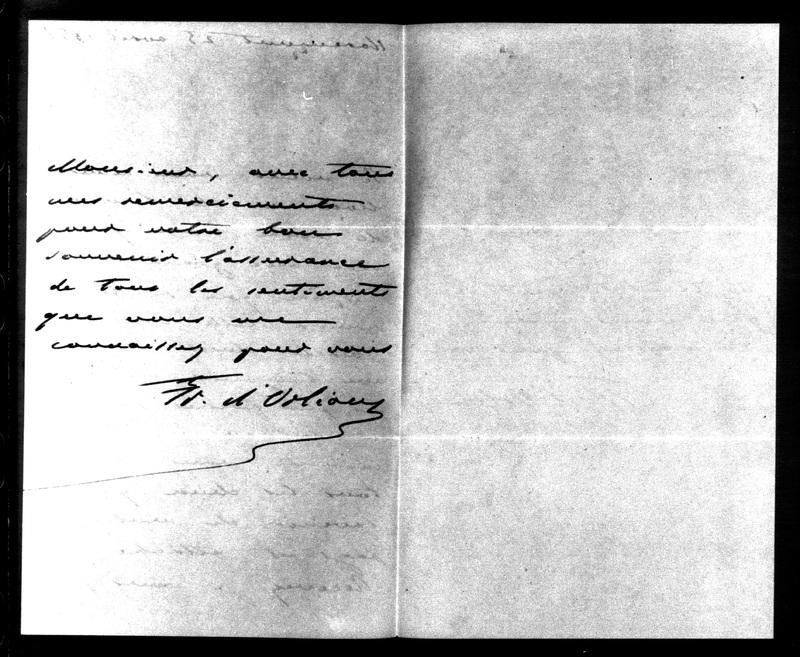 Monsieur, avec tous
mes remerciements
pour votre bon
souvenir l'assurance
de tous les sentiments
que vous me
connaissez pour vous
Fr. d'Orléans